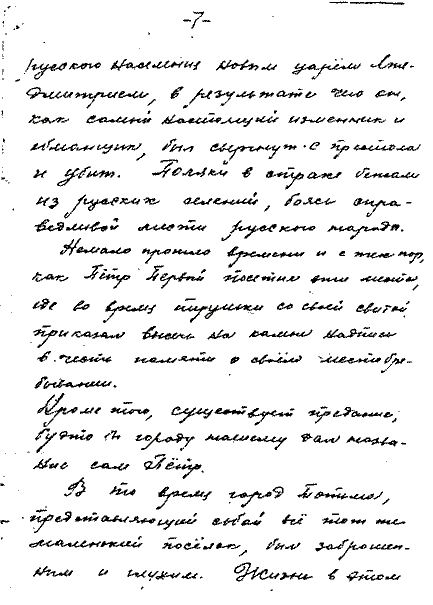 -7-
русского населения новым царём Лже-
дмитрием, в результате чего он,
как самый настоящий изменник и
обманщик, был сыргнут с престола
и убит. Поляки в страхе бежали
из русских селений, боясь спра-
ведливой мести русского народа.
Немало прошло времени и с тех пор,
как Пётр Первый посетил эти места,
где во время пирушки со своей свитой
приказал высечь на камне надпись
в честь памяти о своём местопре-
бывании.
Кроме того, существует предание,
будто и городу нашему дал назва-
ние сам Пётр.
В то время город Тотьма,
представляющий собой всё тот же
маленький посёлок, был заброшен-
ным и глухим. Жизнь в этом